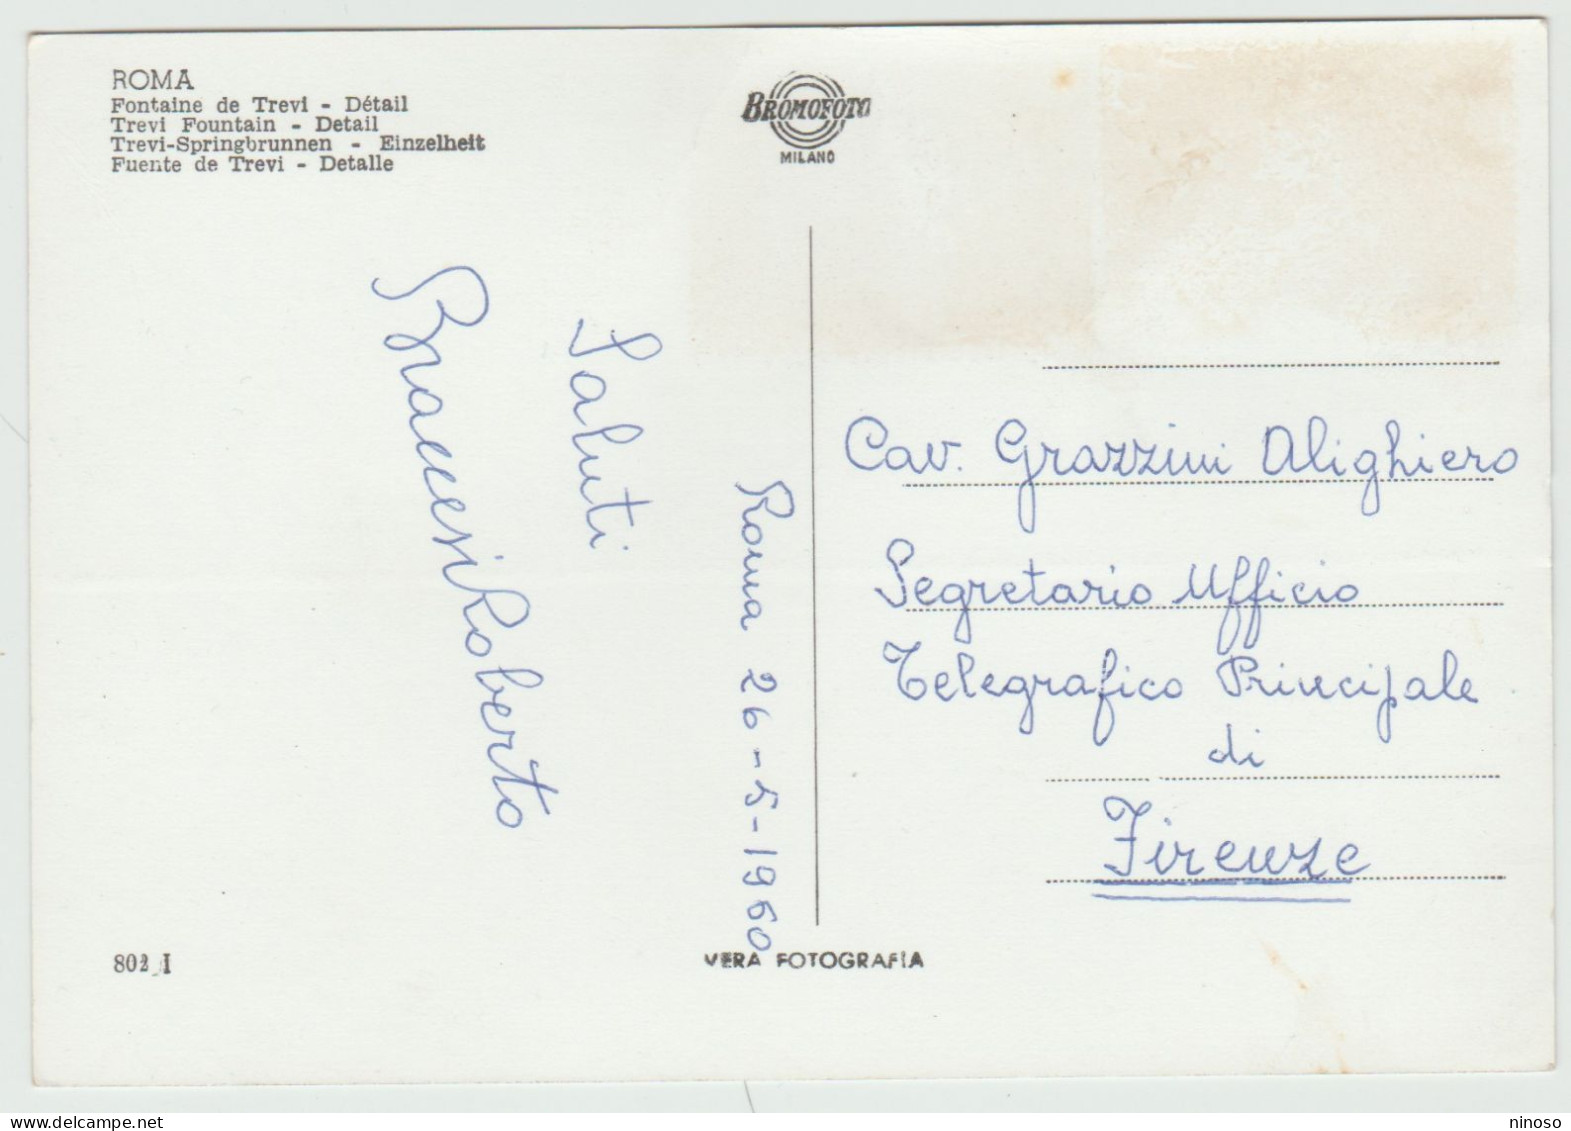 ROMA
Fontaine de Trevi - Détail
Trevi Fountain - Detail
Trevi-Springbrunnen - Einzelheit
Fuente de Trevi - Detalle
BROMOFOTO
MILANO
Roma 26-5-1960
Saluti
Braccesi Roberto
Cav. Grazzini Alighiero
Segretario Ufficio
Telegrafico Principale
di
Firenze
802 I
VERA FOTOGRAFIA
ninoso